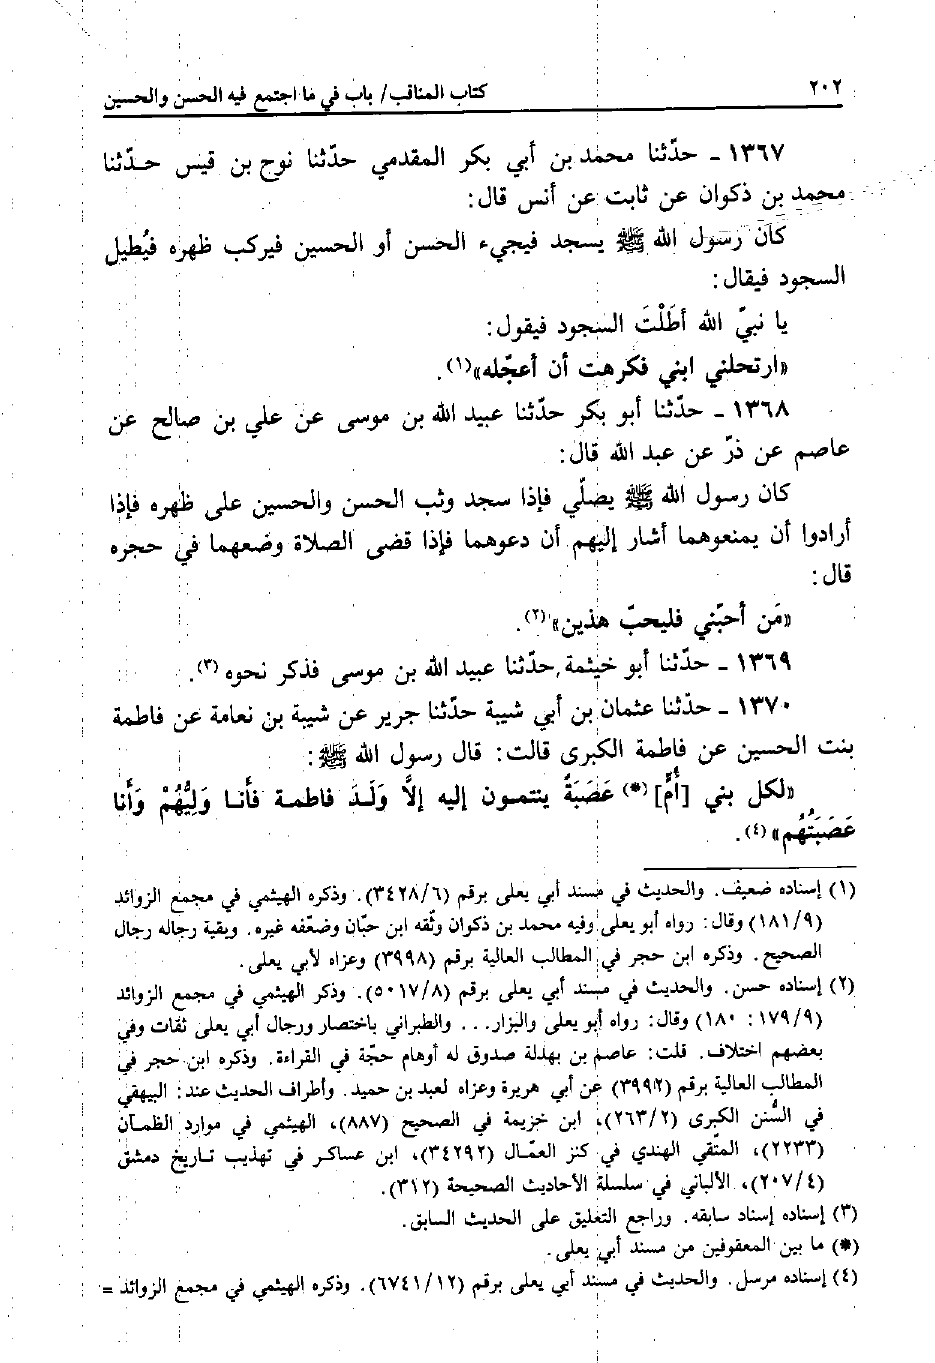 ٢٠٢ كتاب المناقب/ باب في ما اجتمع فيه الحسن والحسين
١٣٦٧ - حدّثنا محمد بن أبي بكر المقدمي حدّثنا نوح بن قيس حدّثنا
محمد بن ذكوان عن ثابت عن أنس قال:
كان رسول الله ﷺ يسجد فيجيء الحسن أو الحسين فيركب ظهره فيُطيل
السجود فيقال:
يا نبيّ الله أطَلْتَ السجود فيقول:
«ارتحلني ابني فكرهت أن أعجّله»(١).
١٣٦٨ - حدّثنا أبو بكر حدّثنا عبيد الله بن موسى عن علي بن صالح عن
عاصم عن ذرّ عن عبد الله قال:
كان رسول الله ﷺ يصلّي فإذا سجد وثب الحسن والحسين على ظهره فإذا
أرادوا أن يمنعوهما أشار إليهم أن دعوهما فإذا قضى الصلاة وضعهما في حجره
قال:
«مَن أحبّني فليحبّ هذين»(٢).
١٣٦٩ - حدّثنا أبو خيثمة حدّثنا عبيد الله بن موسى فذكر نحوه(٣).
١٣٧٠ - حدّثنا عثمان بن أبي شيبة حدّثنا جرير عن شيبة بن نعامة عن فاطمة
بنت الحسين عن فاطمة الكبرى قالت: قال رسول الله ﷺ:
«لكل بني [أُمٍّ](*) عَصَبَةٌ ينتمون إليه إلاَّ وَلَدَ فاطمة فأنا وَلِيُّهُمْ وَأنا
عَصَبَتُهُم»(٤).
(١) إسناده ضعيف. والحديث في مسند أبي يعلى برقم (٣٤٢٨/٦). وذكره الهيثمي في مجمع الزوائد
(١٨١/٩) وقال: رواه أبو يعلى وفيه محمد بن ذكوان وثّقه ابن حبّان وضعّفه غيره. وبقية رجاله رجال
الصحيح. وذكره ابن حجر في المطالب العالية برقم (٣٩٩٨) وعزاه لأبي يعلى.
(٢) إسناده حسن. والحديث في مسند أبي يعلى برقم (٥٠١٧/٨). وذكر الهيثمي في مجمع الزوائد
(١٧٩/٩: ١٨٠) وقال: رواه أبو يعلى والبزار... والطبراني باختصار ورجال أبي يعلى ثقات وفي
بعضهم اختلاف. قلت: عاصم بن بهدلة صدوق له أوهام حجّة في القراءة. وذكره ابن حجر في
المطالب العالية برقم (٣٩٩٢) عن أبي هريرة وعزاه لعبد بن حميد. وأطراف الحديث عند: البيهقي
في السُّنن الكبرى (٢٦٣/٢)، ابن خزيمة في الصحيح (٨٨٧)، الهيثمي في موارد الظمآن
(٢٢٣٣)، المتّقي الهندي في كنز العمّال (٣٤٢٩٢)، ابن عساكر في تهذيب تاريخ دمشق
(٢٠٧/٤)، الألباني في سلسلة الأحاديث الصحيحة (٣١٢).
(٣) إسناده إسناد سابقه. وراجع التعليق على الحديث السابق.
(*) ما بين المعقوفين من مسند أبي يعلى.
(٤) إسناده مرسل. والحديث في مسند أبي يعلى برقم (٦٧٤١/١٢). وذكره الهيثمي في مجمع الزوائد =